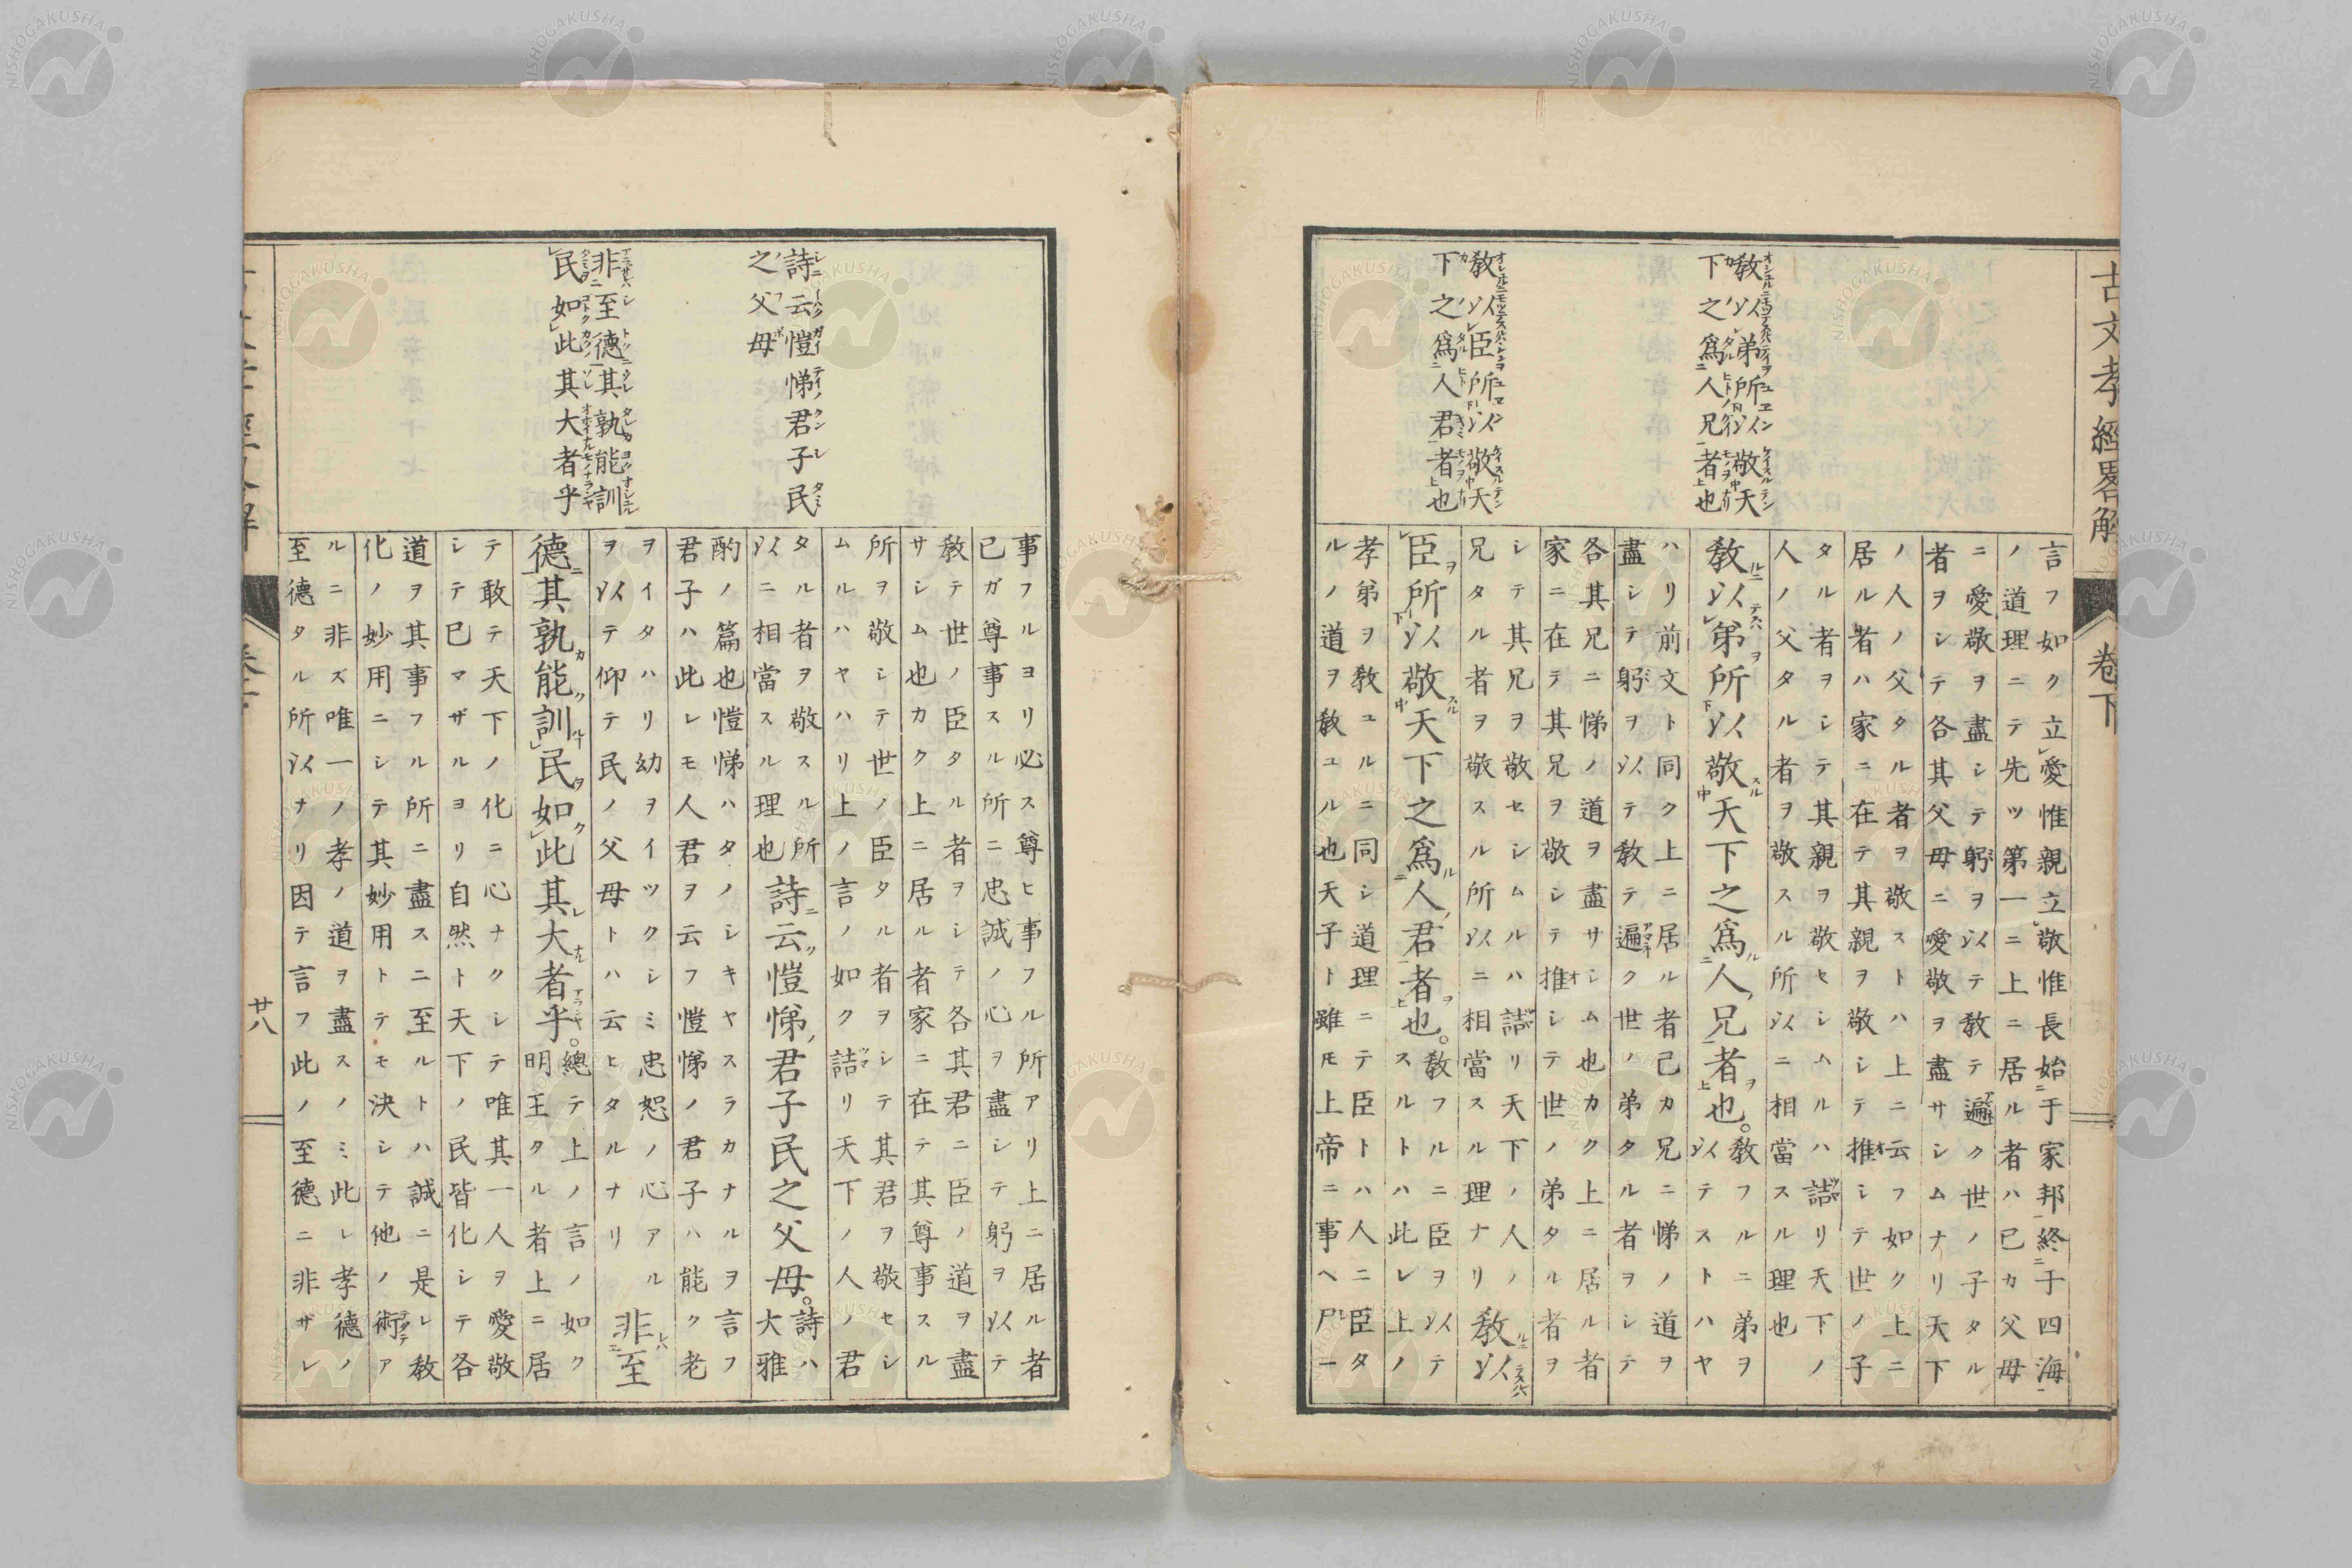 古文孝經畧解　卷下
教以弟所以敬天
下之爲人兄者也
教以臣所以敬天
下之爲人君者也
言フ如ク立愛惟親立敬惟長始于家邦終于四海
ノ道理ニテ先ツ第一ニ上ニ居ル者ハ己カ父母
ニ愛敬ヲ盡シテ躬ヲ以テ教テ遍ク世ノ子タル
者ヲシテ各其父母ニ愛敬ヲ盡サシムナリ天下
ノ人ノ父タル者ヲ敬ストハ上ニ云フ如ク上ニ
居ル者ハ家ニ在テ其親ヲ敬シテ推シテ世ノ子
タル者ヲシテ其親ヲ敬セシムルハ詰リ天下ノ
人ノ父タル者ヲ敬スル所以ニ相當スル理也
教以弟所以敬天下之爲人兄者也。
教フルニ弟ヲ
以テストハヤ
ハリ前文ト同ク上ニ居ル者己カ兄ニ悌ノ道ヲ
盡シテ躬ヲ以テ教テ遍ク世ノ弟タル者ヲシテ
各其兄ニ悌ノ道ヲ盡サシム也カク上ニ居ル者
家ニ在テ其兄ヲ敬シテ推シテ世ノ弟タル者ヲ
シテ其兄ヲ敬セシムルハ詰リ天下ノ人ノ
兄タル者ヲ敬スル所以ニ相當スル理ナリ
教以
臣所以敬天下之爲人君者也。
教フルニ臣ヲ以テ
スルトハ此レ上ノ
孝弟ヲ教ユルニ同シ道理ニテ臣トハ人ニ臣タ
ルノ道ヲ教ユル也天子ト雖モ上帝ニ事ヘ尸ニ
詩云愷悌君子民
之父母
非至德其孰能訓
民如此其大者乎
事フルヨリ必ス尊ヒ事フル所アリ上ニ居ル者
已ガ尊事スル所ニ忠誠ノ心ヲ盡シテ躬ヲ以テ
教テ世ノ臣タル者ヲシテ各其君ニ臣ノ道ヲ盡
サシム也カク上ニ居ル者家ニ在テ其尊事スル
所ヲ敬シテ世ノ臣タル者ヲシテ其君ヲ敬セシ
ムルハヤハリ上ノ言ノ如ク詰リ天下ノ人ノ君
タル者ヲ敬スル所
以ニ相當スル理也
詩云愷悌君子民之父母。
詩ハ
大雅
酌ノ篇也愷悌ハタノシキヤスラカナルヲ言フ
君子ハ此レモ人君ヲ云フ愷悌ノ君子ハ能ク老
ヲイタハリ幼ヲイツクシミ忠恕ノ心アル
ヲ以テ仰テ民ノ父母トハ云ヒタルナリ
非至
德其孰能訓民如此其大者乎。
總テ上ノ言ノ如ク
明王タル者上ニ居
テ敢テ天下ノ化ニ心ナクシテ唯其一人ヲ愛敬
シテ已マザルヨリ自然ト天下ノ民皆化シテ各
道ヲ其事フル所ニ盡スニ至ルトハ誠ニ是レ教
化ノ妙用ニシテ其妙用トテモ決シテ他ノ術ア
ルニ非ズ唯一ノ孝ノ道ヲ盡スノミ此レ孝德ノ
至德タル所以ナリ因テ言フ此ノ至德ニ非ザレ
廿八